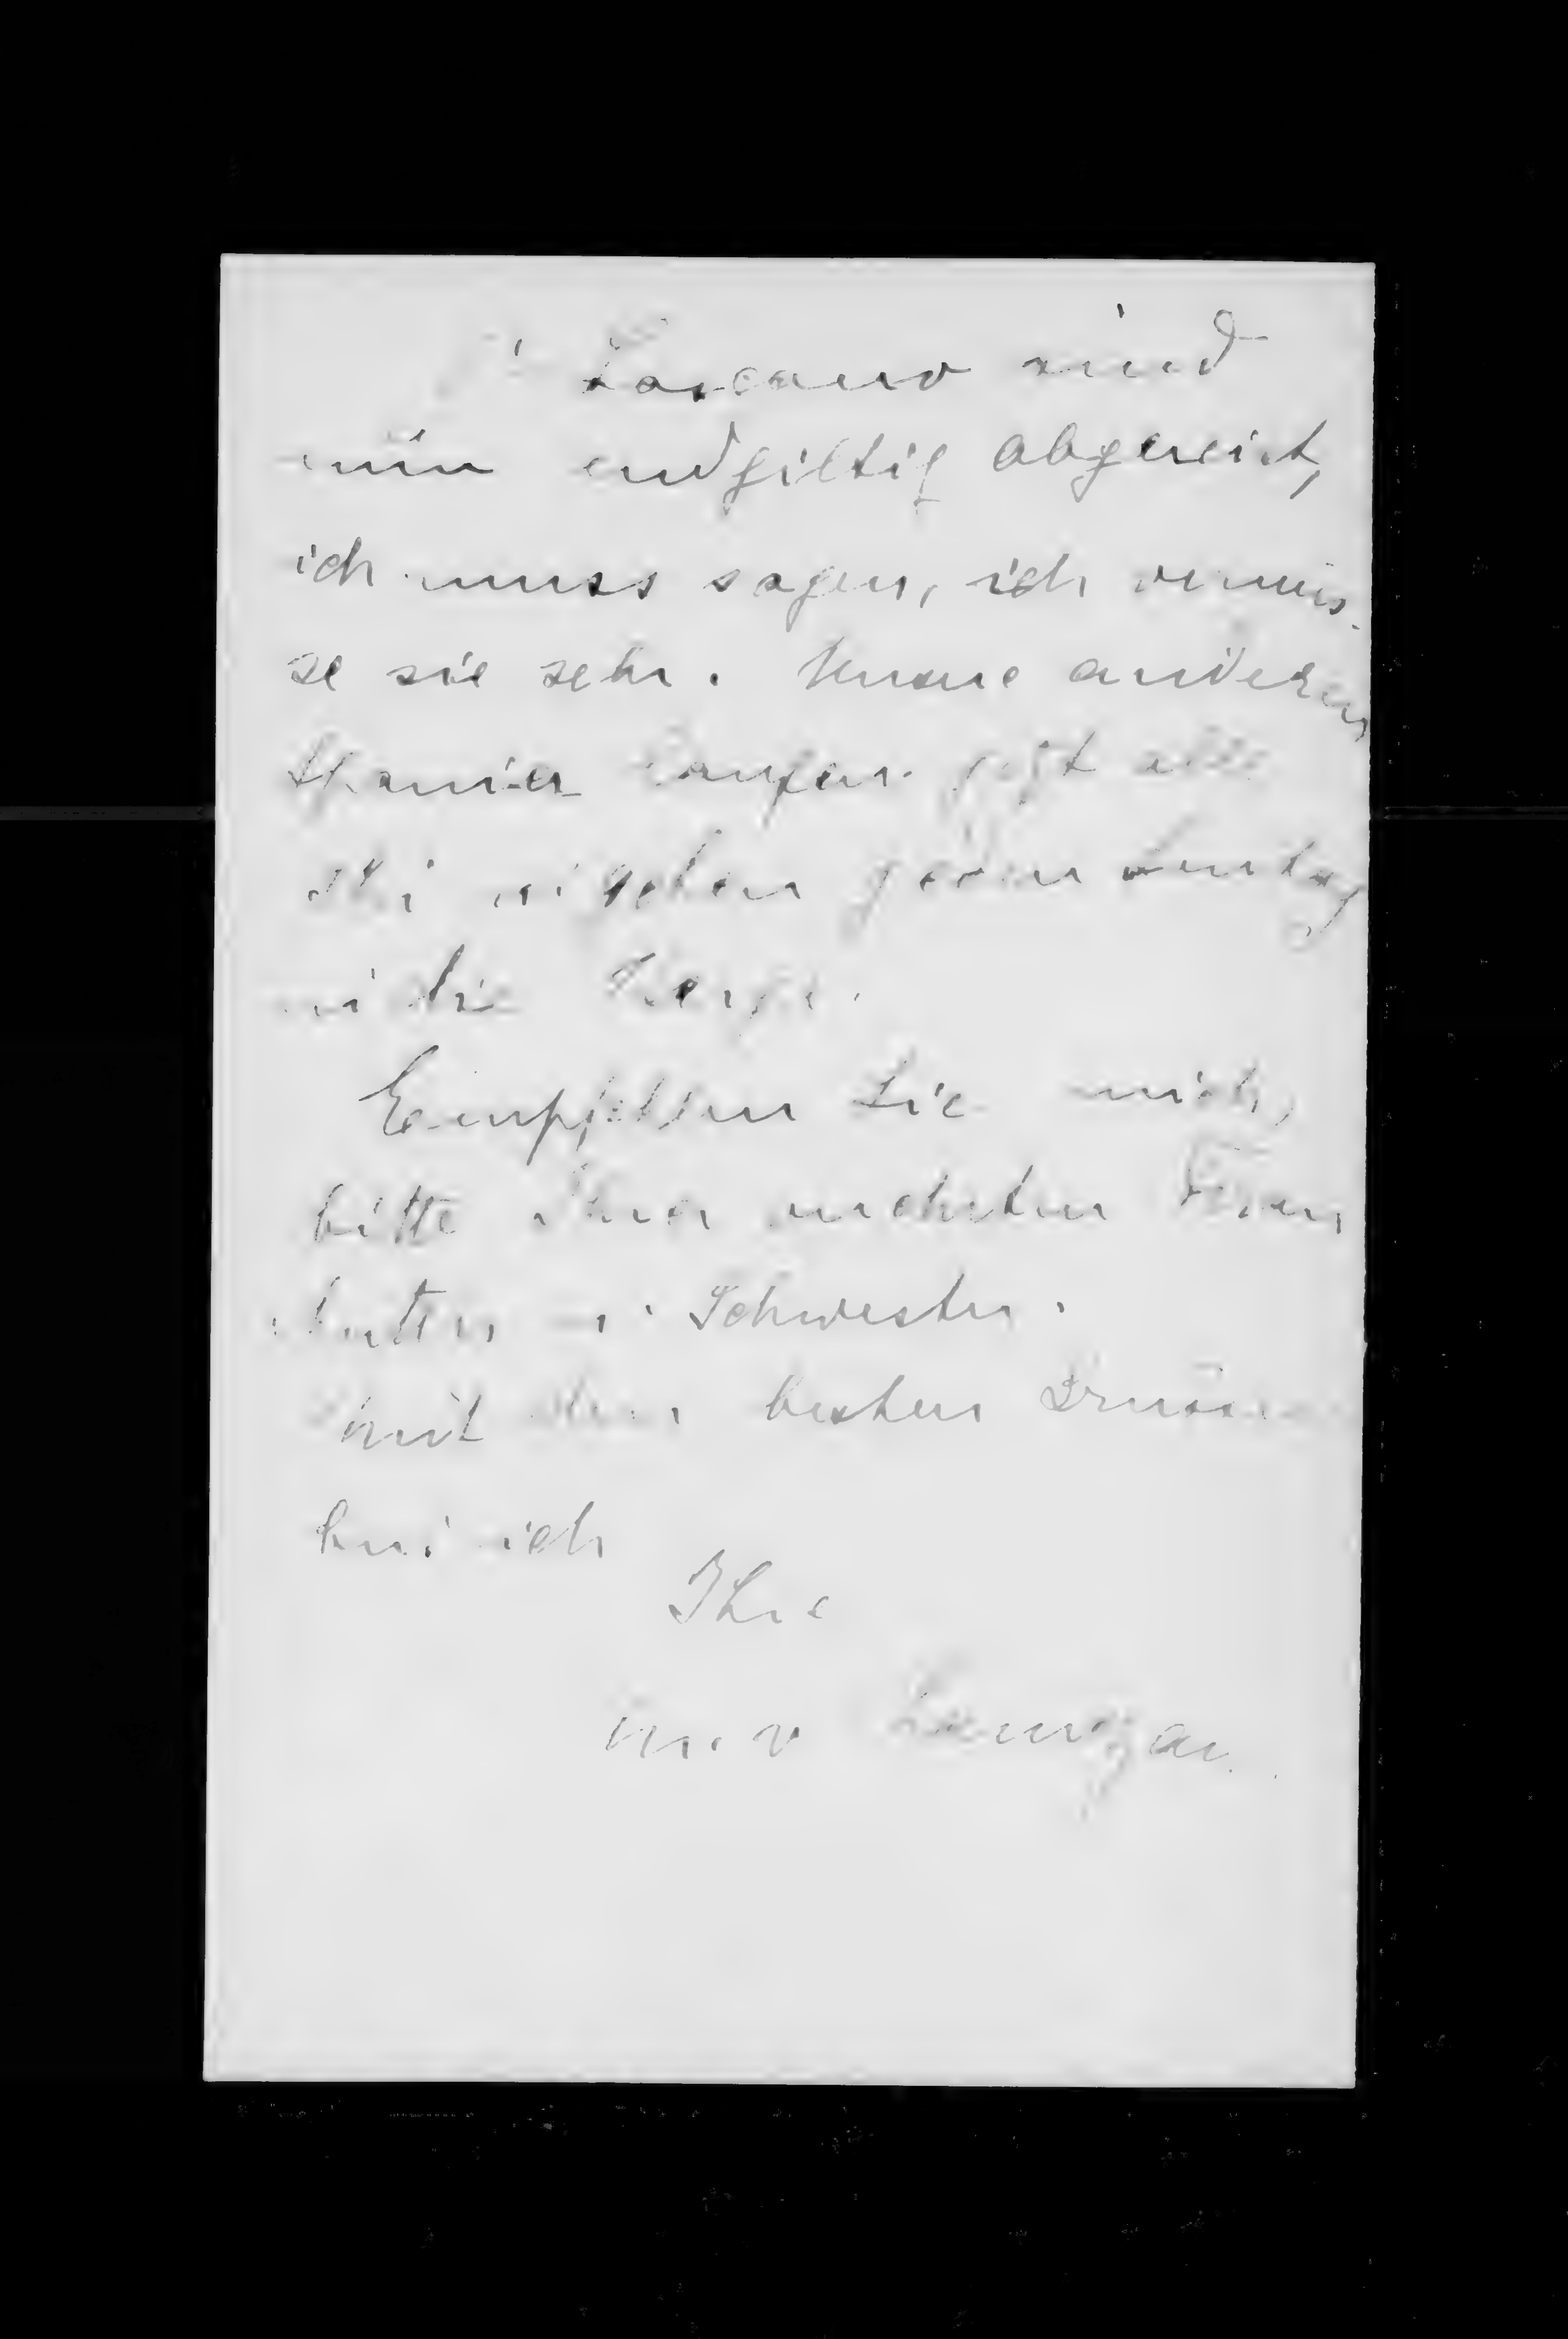 Lascano sind
nun endgiltig abgereist,
ich muss sagen, ich vermis-
se sie sehr. Unsere anderen
Spanier laufen jetzt alle
Ski u. gehen jeden Sonntag
in die Berge.
Empfehlen Sie mich,
bitte Ihrer verehrten Frau
Mutter u. Schwester.
Mit den besten Grüssen
bin ich
Ihre
M. v.